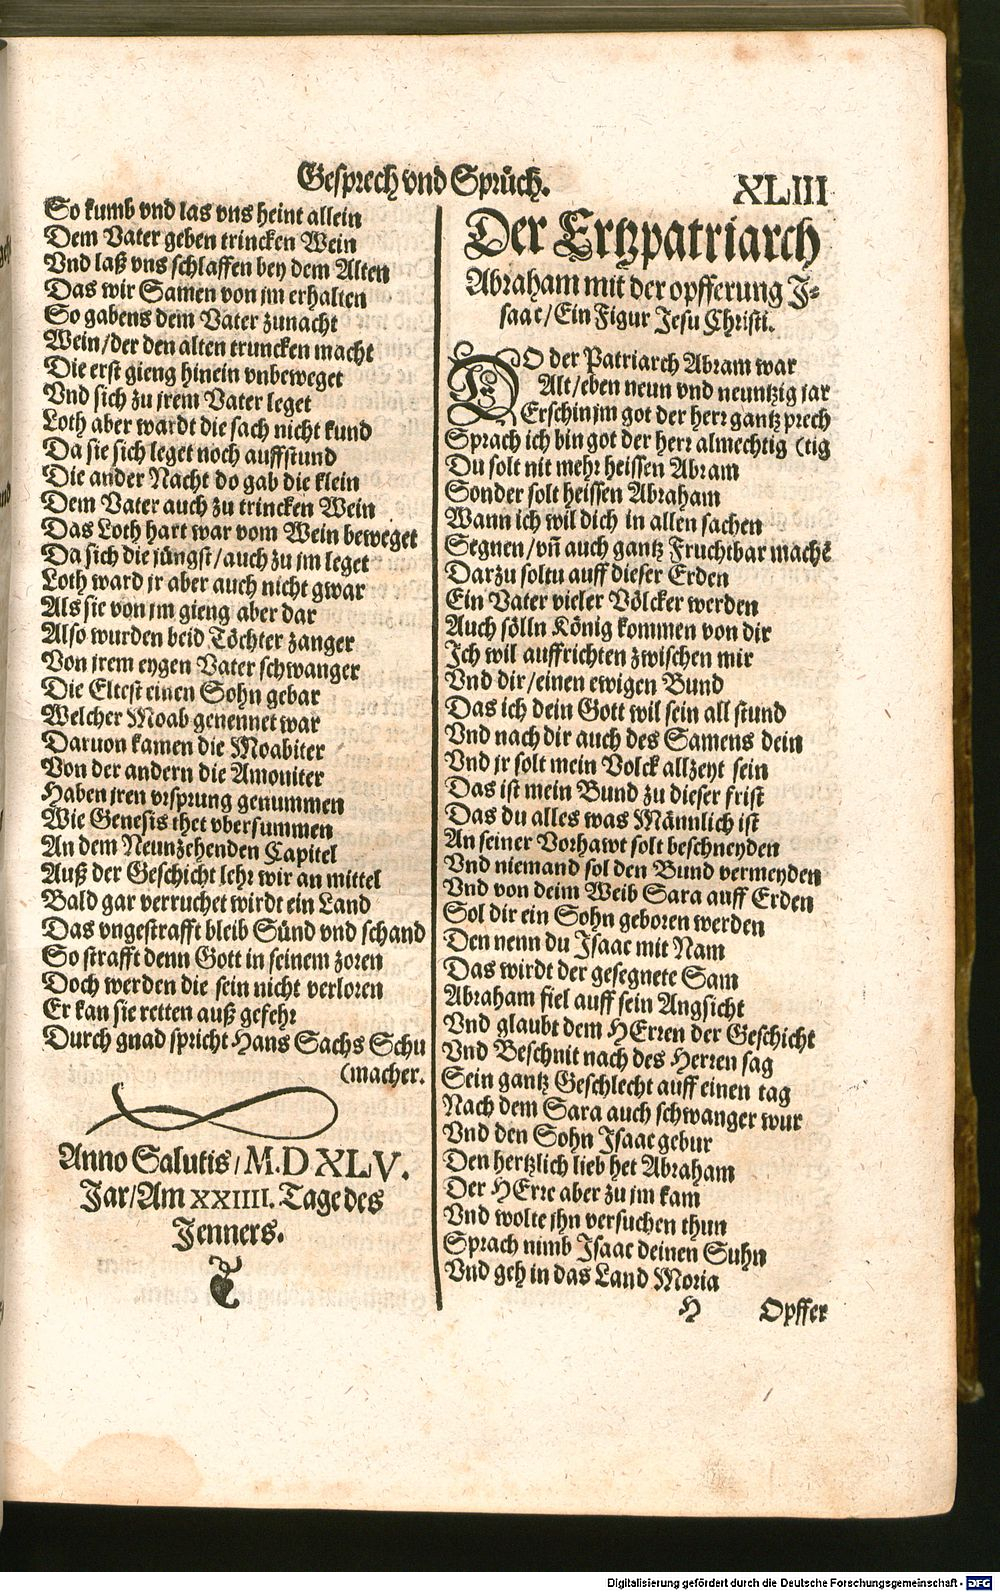 Gesprech vnd Sprüch.
XLIII
So kumb vnd las vns heint allein
Dem Vater geben trincken Wein
Vnd laß vns schlaffen bey dem Alten
Das wir Samen von jm erhalten
So gabens dem Vater zunacht
Wein/der den alten truncken macht
Die erst gieng hinein vnbeweget
Vnd sich zu jrem Vater leget
Loth aber wardt die sach nicht kund
Da sie sich leget noch auffstund
Die ander Nacht do gab die klein
Dem Vater auch zu trincken Wein
Das Loth hart war vom Wein beweget
Da sich die jüngst/auch zu jm leget
Loth ward jr aber auch nicht gwar
Als sie von jm gieng aber dar
Also wurden beid Töchter zanger
Von jrem eygen Vater schwanger
Die Eltest einen Sohn gebar
Welcher Moab genennet war
Daruon kamen die Moabiter
Von der andern die Amoniter
Haben jren vrsprung genummen
Wie Genesis thet vbersummen
An dem Neunzehenden Capitel
Auß der Geschicht lehr wir an mittel
Bald gar verruchet wirdt ein Land
Das vngestrafft bleib Sünd vnd schand
So strafft denn Gott in seinem zoren
Doch werden die sein nicht verloren
Er kan sie retten auß gefehr
Durch gnad spricht Hans Sachs Schu
(macher.
Anno Salutis/M.D XLV.
Jar/Am XXIIII. Tage des
Jenners.
Der Ertzpatriarch
Abraham mit der opfferung J-
saac/Ein Figur Jesu Christi.
DO der Patriarch Abram war
Alt/eben neun vnd neuntzig jar
Erschin jm got der herr gantz prech
Sprach ich bin got der herr almechtig (tig
Du solt nit mehr heissen Abram
Sonder solt heissen Abraham
Wann ich wil dich in allen sachen
Segnen/vñ auch gantz Fruchtbar machē
Darzu soltu auff dieser Erden
Ein Vater vieler Völcker werden
Auch sölln König kommen von dir
Ich wil auffrichten zwischen mir
Vnd dir/einen ewigen Bund
Das ich dein Gott wil sein all stund
Vnd nach dir auch des Samens dein
Vnd jr solt mein Volck allzeyt sein
Das ist mein Bund zu dieser frist
Das du alles was Männlich ist
An seiner Vorhawt solt beschneyden
Vnd niemand sol den Bund vermeyden
Vnd von deim Weib Sara auff Erden
Sol dir ein Sohn geboren werden
Den nenn du Isaac mit Nam
Das wirdt der gesegnete Sam
Abraham fiel auff sein Angsicht
Vnd glaubt dem HErren der Geschicht
Vnd Beschnit nach des Herren sag
Sein gantz Geschlecht auff einen tag
Nach dem Sara auch schwanger wur
Vnd den Sohn Isaac gebur
Den hertzlich lieb het Abraham
Der HErre aber zu jm kam
Vnd wolte jhn versuchen thun
Sprach nimb Isaac deinen Suhn
Vnd geh in das Land Moria
H Opffer
Digitalisierung gefördert durch die Deutsche Forschungsgemeinschaft - DFG